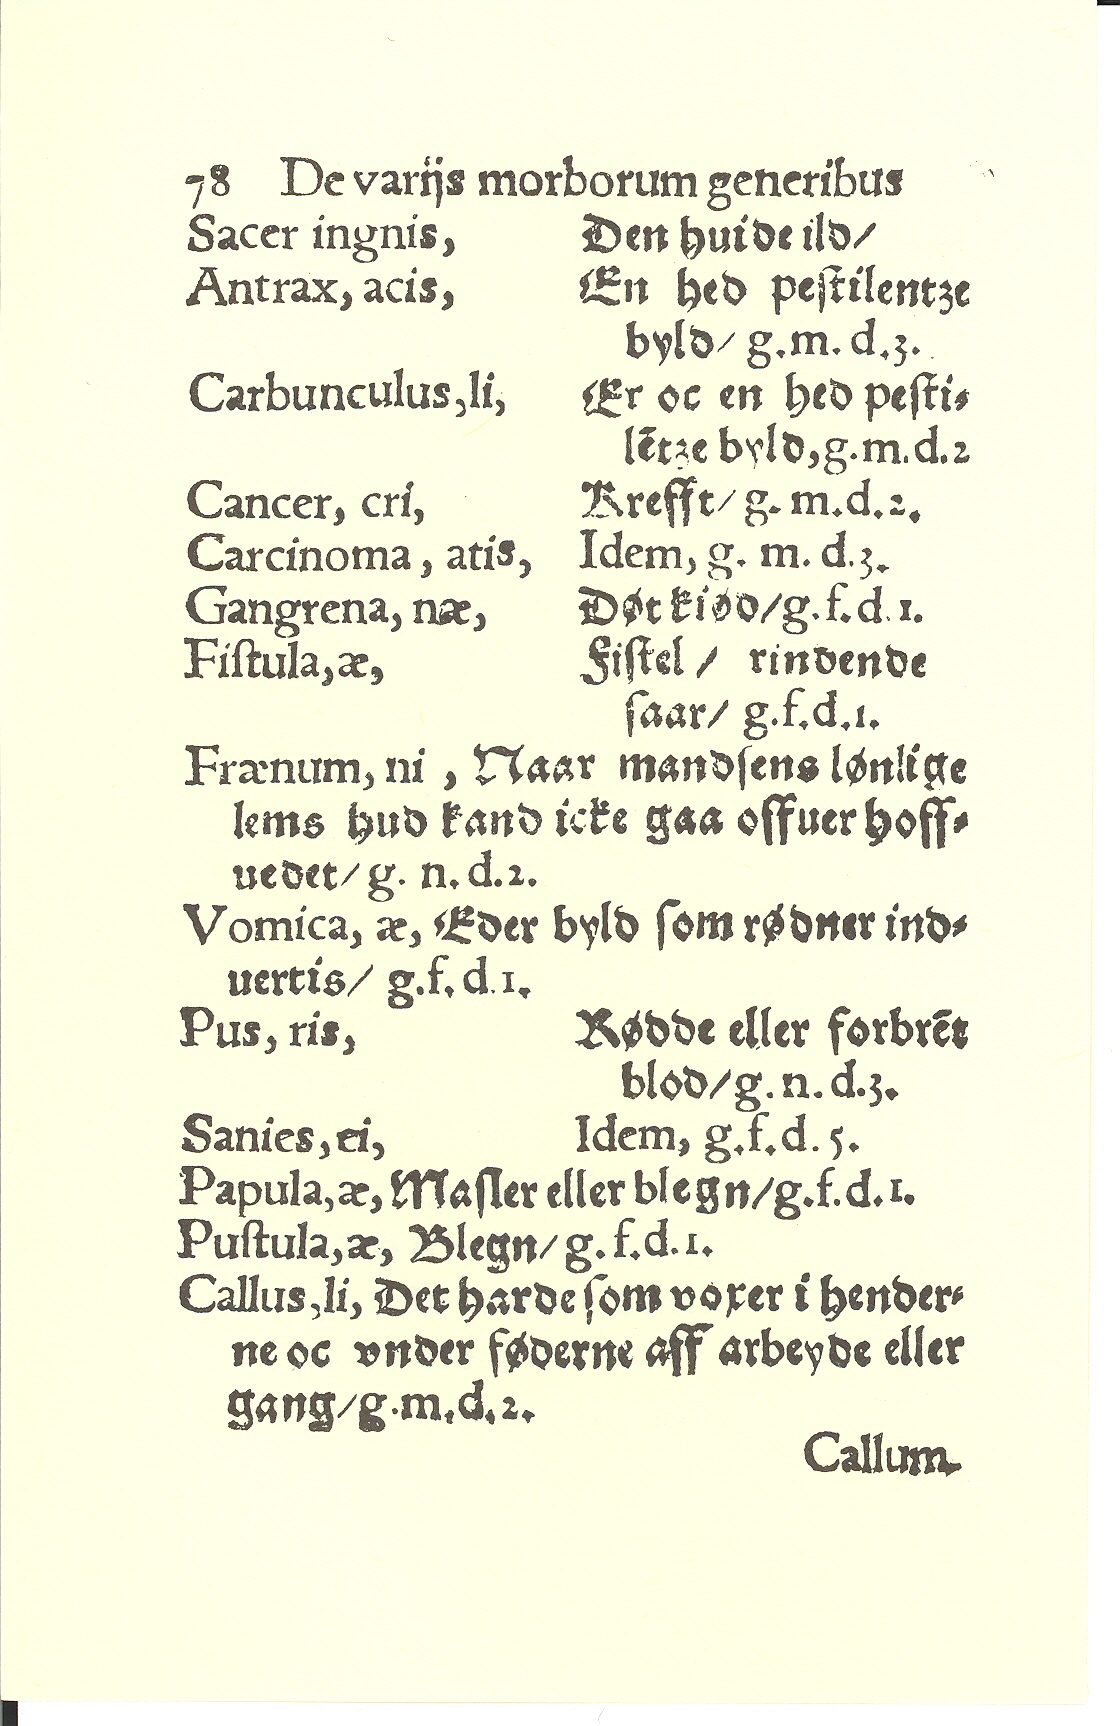 78 De varijs morborum generibus
Sacer ingnis, Den huide ild/
Antrax, acis, En hed pestilentze
byld/ g.m.d.3.
Carbunculus, li, Er oc en hed pesti⸗
lētze byld, g.m.d.2
Cancer, cri, Krefft/ g.m.d.2.
Carcinoma, atis, Idem, g.m.d.3.
Gangrena, næ, Døt kiød/g.f.d.1.
Fiſtula, æ, Fiſtel / rindende
ſaar/ g.f.d.1.
Frænum, ni, Naar mandſens lønlige
lems hud kand icke gaa offuer hoff⸗
uedet/ g.n.d.2.
Vomica, æ, Eder byld ſom rødner ind⸗
uertis/ g.f.d.1.
Pus, ris, Rødde eller forbrēt
blod/g.n.d.3.
Sanies, ei, Idem, g.f.d.5.
Papula, æ, Maſler eller blegn/g.f.d.1.
Puſtula, æ, Blegn/ g.f.d.1.
Callus, li, Det harde ſom voxer i hender⸗
ne oc vnder føderne aff arbeyde eller
gang/g.m.d.2.
Callum.